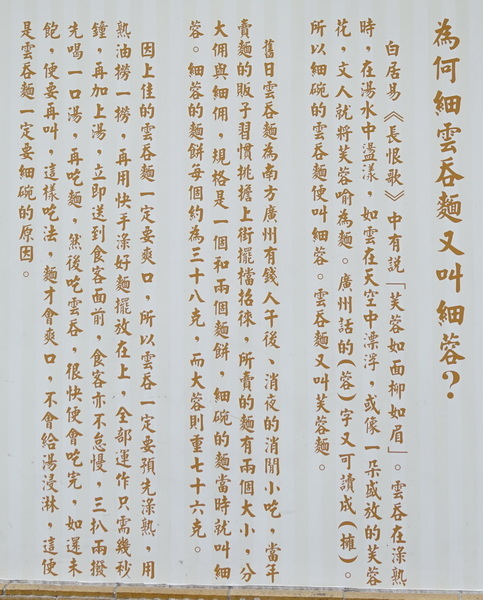 為何細雲吞麵又叫細蓉？
白居易《長恨歌》中有説「芙蓉如面柳如眉」。雲吞在淥熟
時，在湯水中盪漾，如雲在天空中漂浮，或像一朵盛放的芙蓉
花，文人就將芙蓉喻為麵。廣州話的（蓉）字又可讀成（擁）。
所以細碗的雲吞麵便叫細蓉。雲吞麵又叫芙蓉麵。
舊日雲吞麵為南方廣州有錢人午後、消夜的消閒小吃，當年
賣麵的販子習慣挑擔上街擺擋招徠，所賣的麵有兩個大小，分
大佣與細佣，規格是一個和兩個麵餅，細碗的麵當時就叫細
蓉。細蓉的麵餅每個約為三十八克，而大蓉則重七十六克。
因上佳的雲吞麵一定要爽口，所以雲吞一定要預先淥熟，用
熟油撈一撈，再用快手淥好麵擺放在上，全部運作只需幾秒
鐘，再加上湯，立即送到食客面前，食客亦不怠慢，三扒兩撥
先喝一口湯，再吃麵，然後吃雲吞，很快便會吃完，如還未
飽，便要再叫，這樣吃法，麵才會爽口，不會給湯浸淋，這便
是雲吞麵一定要細碗的原因。